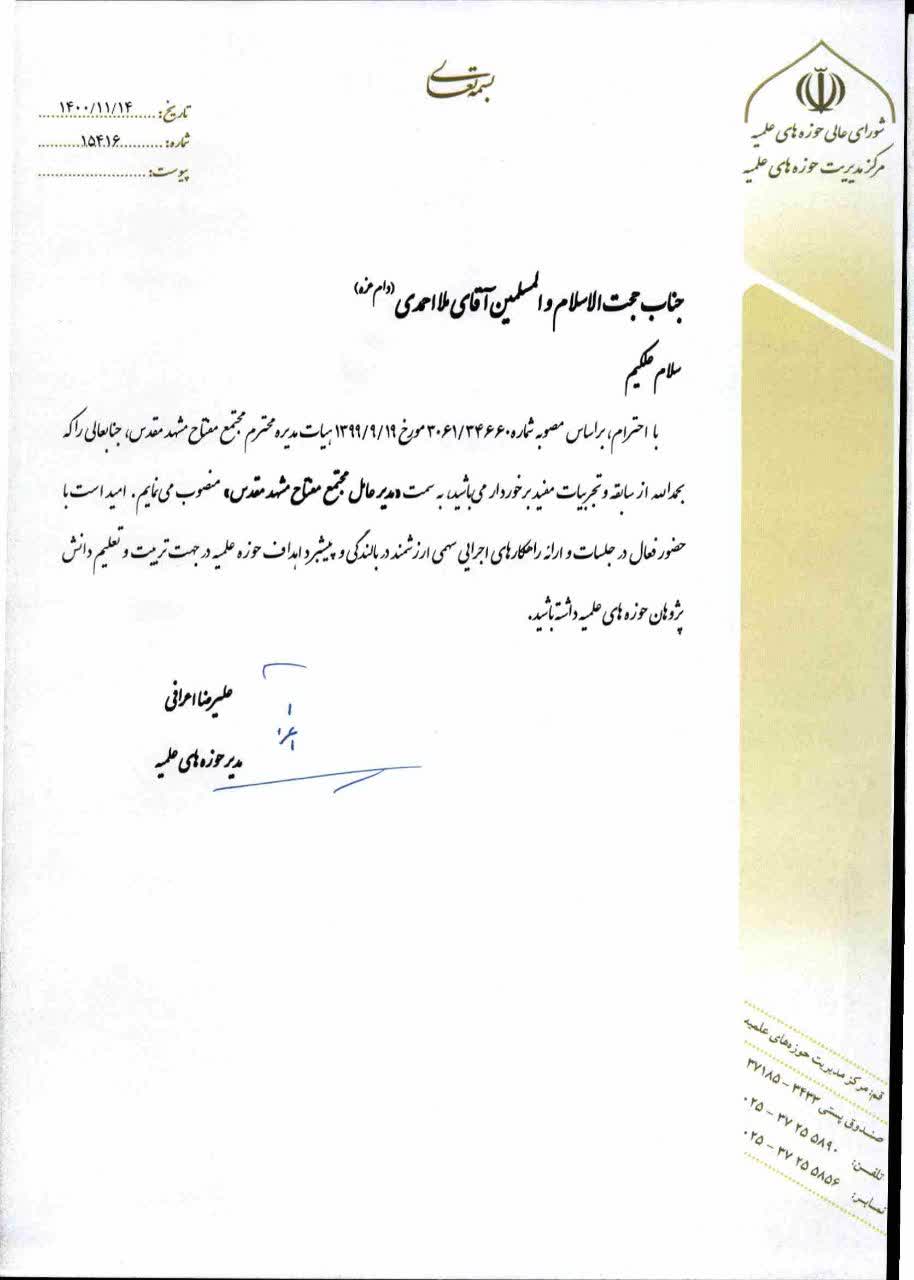 بسمه تعالی
شورای عالی حوزه های علمیه
مرکز مدیریت حوزه های علمیه
تاریخ: ۱۴۰۰/۱۱/۱۴
شماره: ۱۵۴۱۶
پیوست:
جناب حجت الاسلام و المسلمین آقای ملا احمدی (دام عزه)
سلام علیکم
با احترام، براساس مصوبه شماره ۳۰۶۱/۳۴۶۶۰ مورخ ۱۳۹۹/۹/۱۹ هیات مدیره محترم مجتمع مفتاح مشهد مقدس، جنابعالی را که
بحمدالله از سابقه و تجربیات مفید برخوردار می‌باشید، به سمت «مدیر عامل مجتمع مفتاح مشهد مقدس» منصوب می‌نمایم. امید است با
حضور فعال در جلسات و ارائه راهکارهای اجرایی سهمی ارزشمند در بالندگی و پیشبرد اهداف حوزه علمیه در جهت تربیت و تعلیم دانش
پژوهان حوزه های علمیه داشته باشید.
علیرضا اعرافی
مدیر حوزه های علمیه
قم: مرکز مدیریت حوزه‌های علمیه
صندوق پستی ۳۴۳۳ - ۳۷۱۸۵
تلفن: ۰۲۵ - ۳۷ ۲۵ ۵۸۹۰
نمابر: ۰۲۵ - ۳۷ ۲۵ ۵۸۵۶